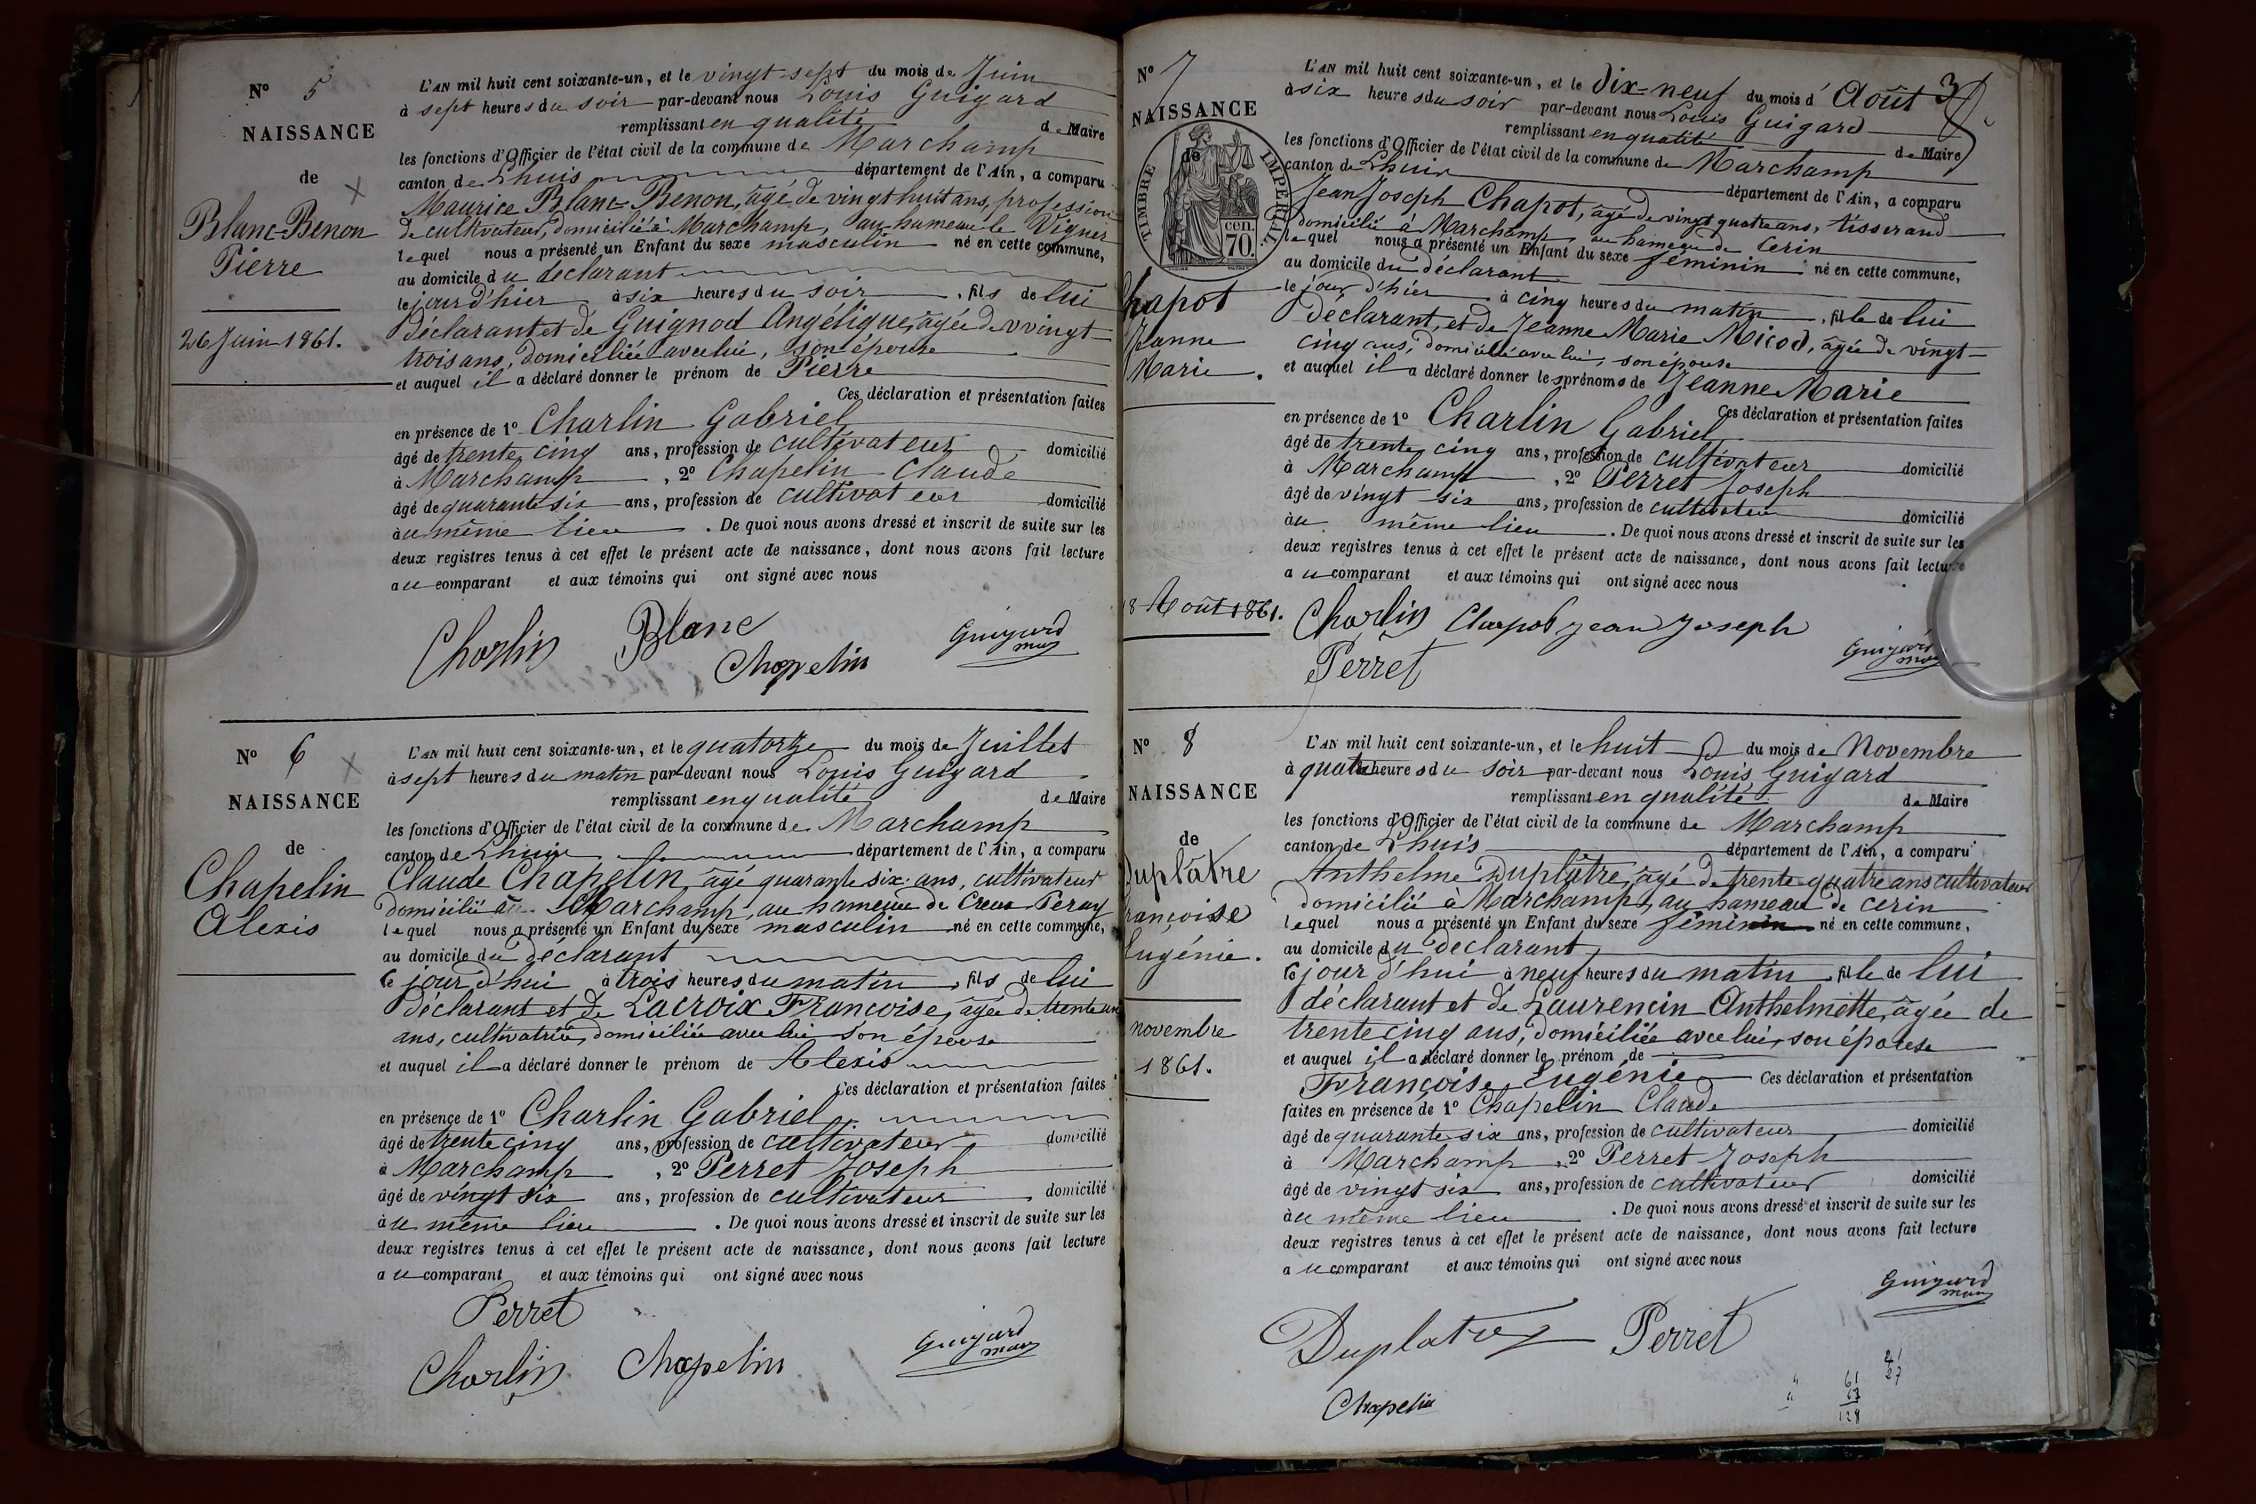 N° 5
NAISSANCE
de
Blanc-Benon
Pierre
26 Juin 1861.
L'AN mil huit cent soixante-un, et le vingt-sept du mois de Juin
à sept heures du soir par-devant nous Louis Guigard
remplissant en qualité de Maire
les fonctions d'Officier de l'état civil de la commune de Marchamp
canton de Lhuis département de l'Ain, a comparu
Maurice Blanc-Benon, âgé de vingt huit ans, profession
de cultivateur, domicilié à Marchamp, au hameau le Vigner
lequel nous a présenté un Enfant du sexe masculin né en cette commune,
au domicile du déclarant
le jour d'hier à six heures du soir, fils de lui
déclarant et de Guignod Angélique, âgée de vingt-
trois ans, domiciliée avec lui, son épouse
et auquel il a déclaré donner le prénom de Pierre
Ces déclaration et présentation faites
en présence de 1° Charlin Gabriel
âgé de trente cinq ans, profession de cultivateur domicilié
à Marchamp, 2° Chapelin Claude
âgé de quarante six ans, profession de cultivateur domicilié
au même lieu. De quoi nous avons dressé et inscrit de suite sur les
deux registres tenus à cet effet le présent acte de naissance, dont nous avons fait lecture
au comparant et aux témoins qui ont signé avec nous
Charlin Blanc Guigard
maire
Chapelin
N° 6
NAISSANCE
de
Chapelin
Alexis
L'AN mil huit cent soixante-un, et le quatorze du mois de Juillet
à sept heures du matin par-devant nous Louis Guigard
remplissant en qualité de Maire
les fonctions d'Officier de l'état civil de la commune de Marchamp
canton de Lhuis département de l'Ain, a comparu
Claude Chapelin, âgé quarante six ans, cultivateur
domicilié à Marchamp, au hameau de
lequel nous a présenté un Enfant du sexe masculin né en cette commune,
au domicile du déclarant
ce jour d'hui à trois heures du matin, fils de lui
déclarant et de Lacroix Françoise, âgée de trente un
ans, cultivatrice, domiciliée avec lui son épouse
et auquel il a déclaré donner le prénom de Alexis
Ces déclaration et présentation faites
en présence de 1° Charlin Gabriel
âgé de trente cinq ans, profession de cultivateur domicilié
à Marchamp, 2° Perret Joseph
âgé de vingt six ans, profession de cultivateur, domicilié
au même lieu. De quoi nous avons dressé et inscrit de suite sur les
deux registres tenus à cet effet le présent acte de naissance, dont nous avons fait lecture
au comparant et aux témoins qui ont signé avec nous
Perret
Charlin Chapelin Guigard
maire
N° 7
NAISSANCE
de
TIMBRE IMPERIAL
cen. 70.
Chapot
Jeanne
Marie.
18 Août 1861.
L'AN mil huit cent soixante-un, et le Dix-neuf du mois d'Août 3
à six heures du soir par-devant nous Louis Guigard
remplissant en qualité de Maire
les fonctions d'Officier de l'état civil de la commune de Marchamp
canton de Lhuis département de l'Ain, a comparu
Jean Joseph Chapot, âgé de vingt quatre ans, tisserand
domicilié à Marchamp, au hameau de Cerin
lequel nous a présenté un Enfant du sexe féminin né en cette commune,
au domicile du déclarant
le jour d'hier à cinq heures du matin, fille de lui
déclarant, et de Jeanne Marie Micod, âgée de vingt-
cinq ans, domiciliée avec lui, son épouse
et auquel il a déclaré donner les prénoms de Jeanne Marie
Ces déclaration et présentation faites
en présence de 1° Charlin Gabriel
âgé de trente cinq ans, profession de cultivateur domicilié
à Marchamp, 2° Perret Joseph
âgé de vingt six ans, profession de cultivateur domicilié
au même lieu. De quoi nous avons dressé et inscrit de suite sur les
deux registres tenus à cet effet le présent acte de naissance, dont nous avons fait lecture
au comparant et aux témoins qui ont signé avec nous
Charlin Chapot jean joseph Guigard
maire
Perret
N° 8
NAISSANCE
de
Duplâtre
Françoise
Eugénie.
novembre
1861.
L'AN mil huit cent soixante-un, et le huit du mois de Novembre
à quatre heures du soir par-devant nous Louis Guigard
remplissant en qualité de Maire
les fonctions d'Officier de l'état civil de la commune de Marchamp
canton de Lhuis département de l'Ain, a comparu
Anthelme Duplâtre, âgé de trente-quatre ans cultivateur
domicilié à Marchamp, au hameau de Cerin
lequel nous a présenté un Enfant du sexe féminin né en cette commune,
au domicile du déclarant
ce jour d'hui à neuf heures du matin, fille de lui
déclarant et de Laurencin Anthelmette, âgée de
trente cinq ans, domiciliée avec lui, son épouse
et auquel il a déclaré donner le prénom de
Françoise Eugénie Ces déclaration et présentation
faites en présence de 1° Chapelin Claude
âgé de quarante six ans, profession de cultivateur domicilié
à Marchamp, 2° Perret Joseph
âgé de vingt six ans, profession de cultivateur domicilié
au même lieu. De quoi nous avons dressé et inscrit de suite sur les
deux registres tenus à cet effet le présent acte de naissance, dont nous avons fait lecture
au comparant et aux témoins qui ont signé avec nous
Guigard
maire
Duplatre Perret
Chapelin
61
67
128